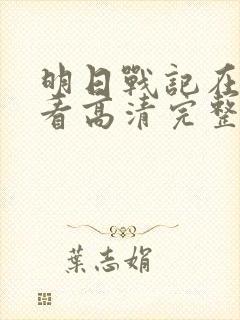 明日戰記在
看高清完整
葉志娟